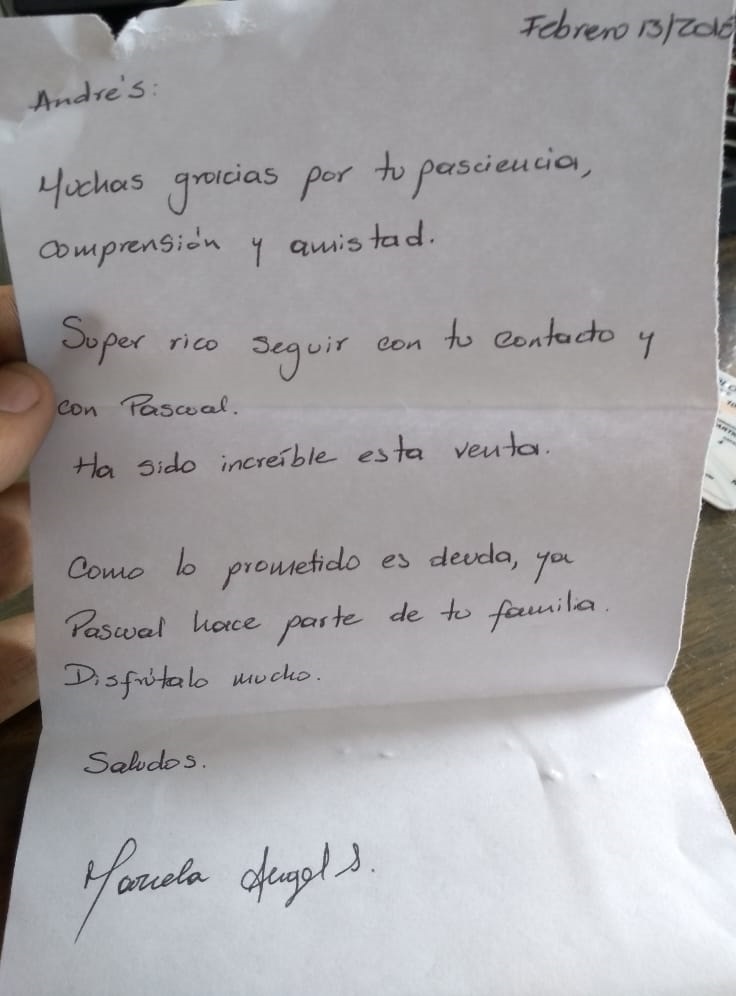 Febrero 13/2018
Andrés:
Muchas gracias por tu pasciencia,
comprensión y amistad.
Super rico seguir con tu contacto y
con Pascual.
Ha sido increíble esta venta.
Como lo prometido es deuda, ya
Pascual hace parte de tu familia.
Disfrútalo mucho.
Saludos.
Marcela Angel S.